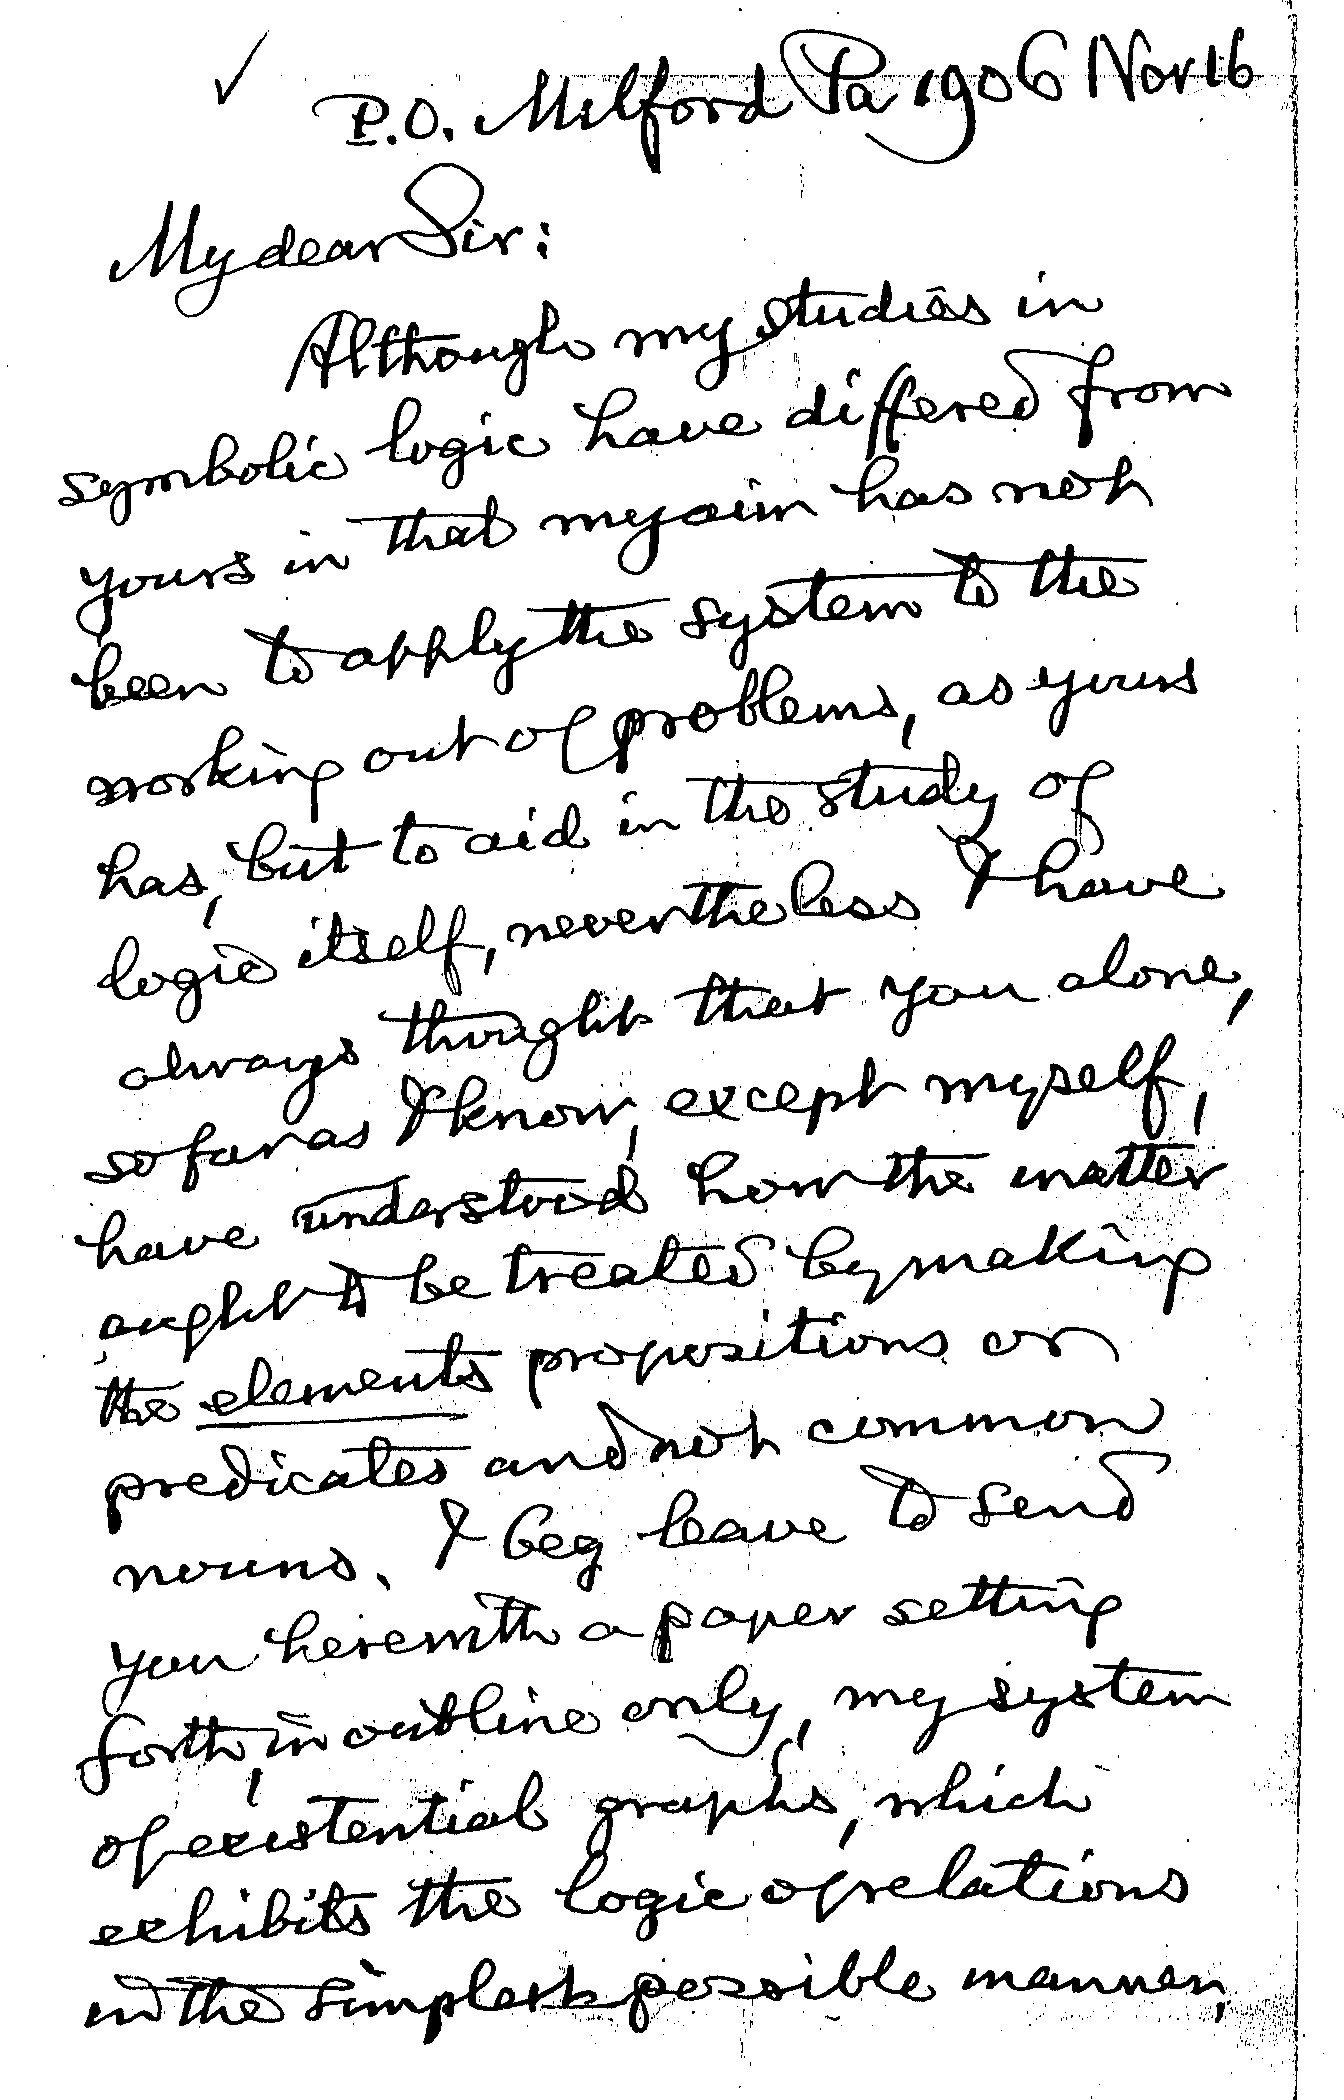 P.O. Milford Pa 1906 Nov 16
My dear Sir:
Although my studies in
symbolic logic have differed from
yours in that my aim has not
been to apply the system to the
working out of problems, as yours
has, but to aid in the study of
logic itself, nevertheless I have
always thought that you alone,
so far as I know, except myself,
have understood how the matter
ought to be treated by making
the elements propositions or
predicates and not common
nouns. I beg leave to send
you herewith a paper setting
forth, in outline only, my system
of existential graphs, which
exhibits the logic of relations
in the simplest possible manner,